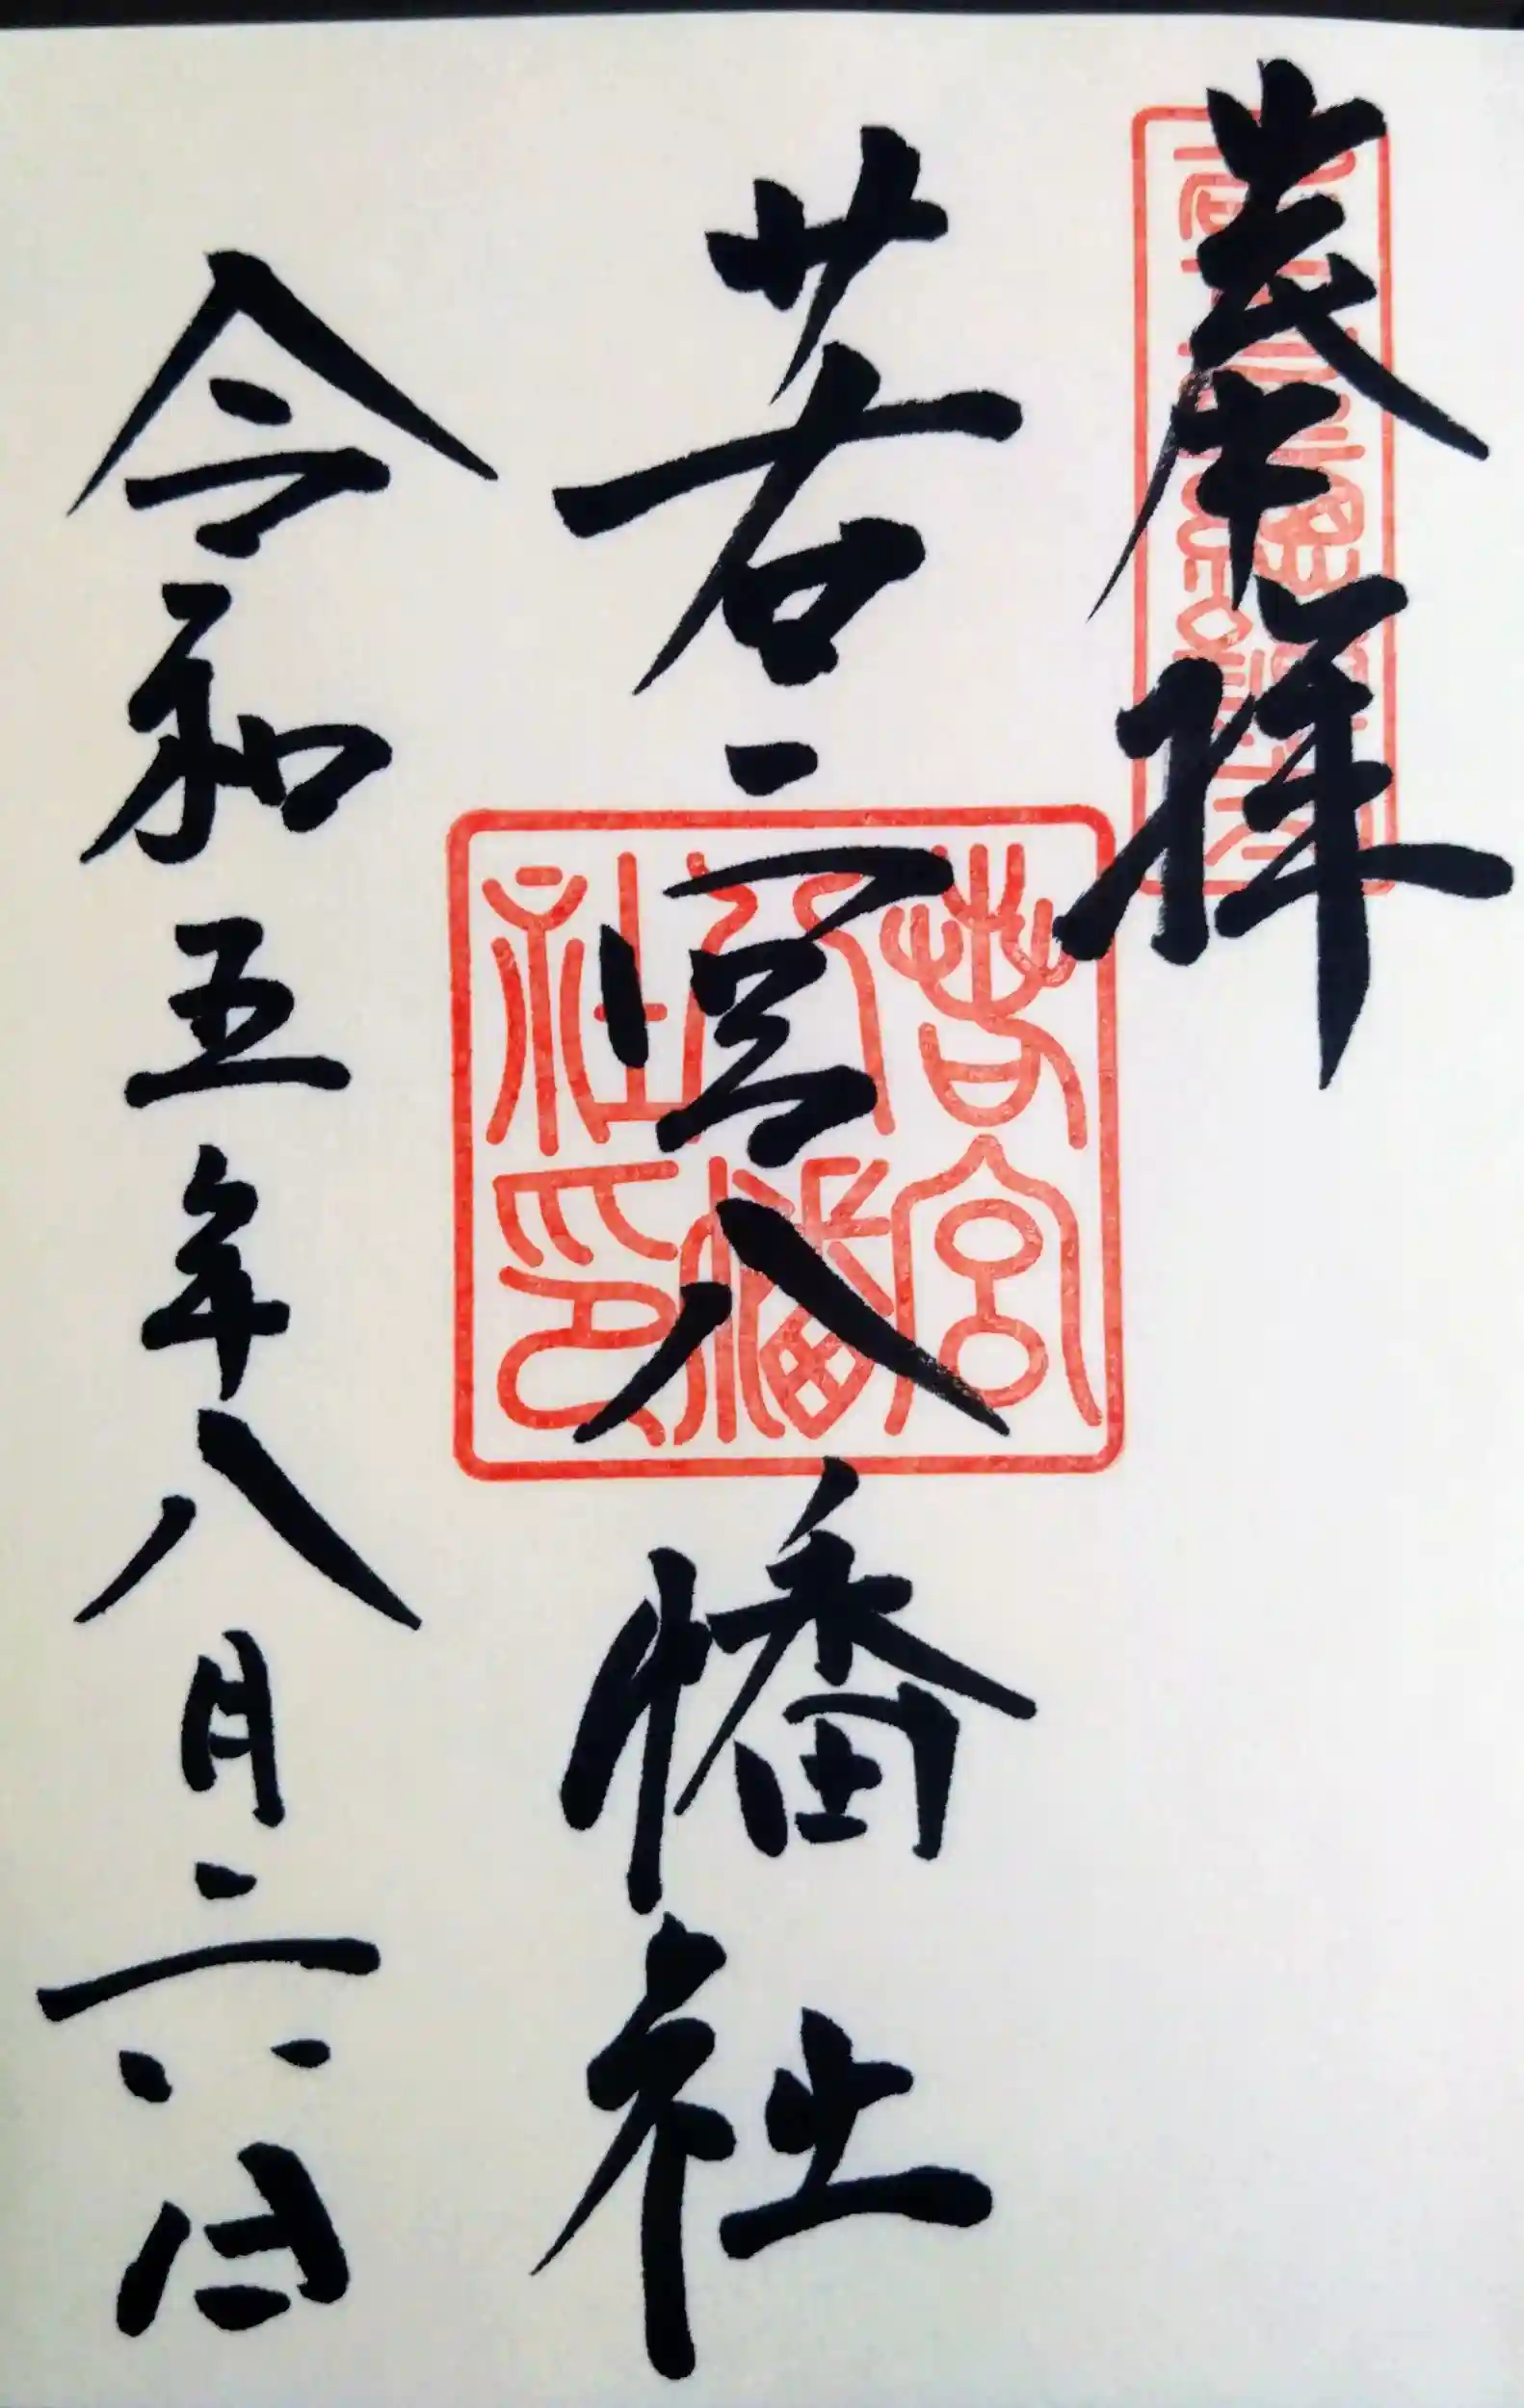 奉拝
若宮八幡社
若宮
八幡
社印
令和五年八月六日